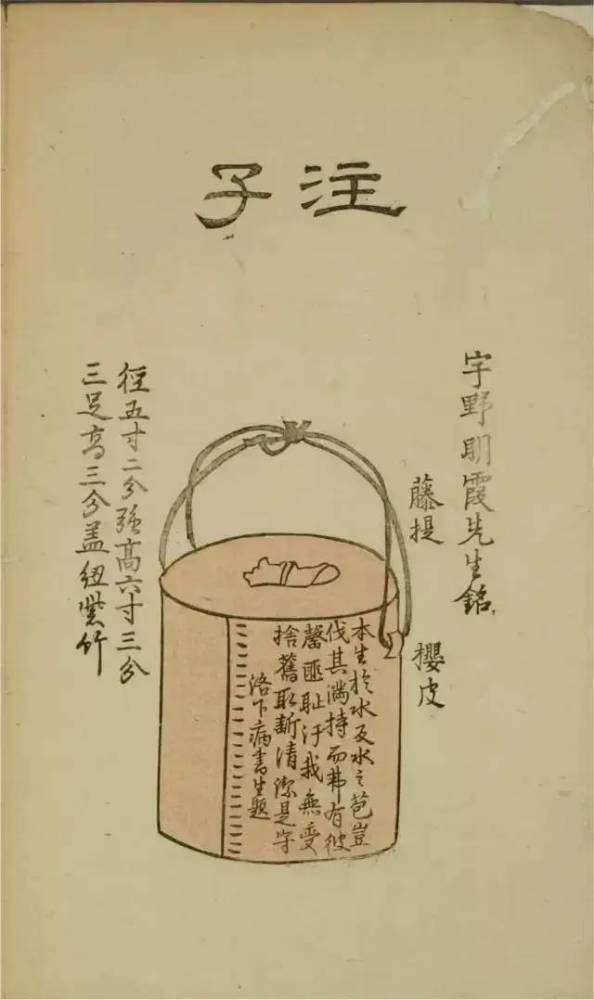 注子
宇野明霞先生銘
藤提
櫻皮
本生於水及水之苞豈
伐其滿持而弗有彼
罄匪恥汙我無受
捨舊取新清潔是守
洛下病書生題
徑五寸二分強高六寸三分
三足高三分蓋紐紫竹